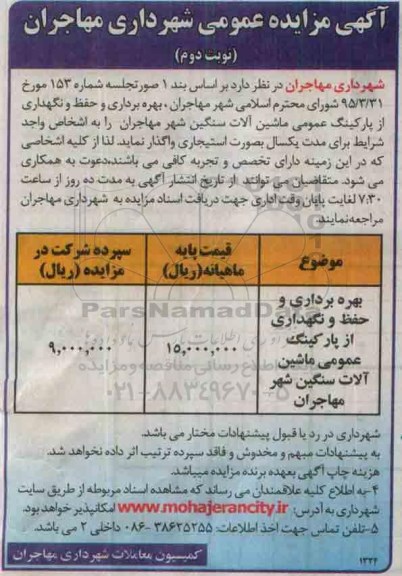 آگهی مزایده عمومی شهرداری مهاجران
(نوبت دوم)
شهرداری مهاجران در نظر دارد بر اساس بند ۱ صورتجلسه شماره ۱۵۳ مورخ
۹۵/۳/۳۱ شورای محترم اسلامی شهر مهاجران ، بهره برداری و حفظ و نگهداری
از پارکینگ عمومی ماشین آلات سنگین شهر مهاجران را به اشخاص واجد
شرایط برای مدت یکسال بصورت استیجاری واگذار نماید. لذا از کلیه اشخاصی
که در این زمینه دارای تخصص و تجربه کافی می باشند،دعوت به همکاری
می شود. متقاضیان می توانند از تاریخ انتشار آگهی به مدت ده روز از ساعت
۷:۳۰ لغایت پایان وقت اداری جهت دریافت اسناد مزایده به شهرداری مهاجران
مراجعه‌نمایند.
موضوع
قیمت پایه ماهیانه(ریال)
سپرده شرکت در مزایده (ریال)
بهره برداری و
حفظ و نگهداری
از پارکینگ
عمومی ماشین
آلات سنگین شهر
مهاجران
۱۵,۰۰۰,۰۰۰
۹,۰۰۰,۰۰۰
ParsNamadData
۰۲۱-۸۸۳۴۹۶۷۰-۵
شهرداری در رد یا قبول پیشنهادات مختار می باشد.
به پیشنهادات مبهم و مخدوش و فاقد سپرده ترتیب اثر داده نخواهد شد.
هزینه چاپ آگهی بعهده برنده مزایده میباشد.
۴-به اطلاع کلیه علاقمندان می رساند که مشاهده اسناد مربوطه از طریق سایت
شهرداری به آدرس: www.mohajerancity.ir امکانپذیر خواهد بود.
۵-تلفن تماس جهت اخذ اطلاعات: ۳۸۶۲۵۲۵۵-۰۸۶ داخلی ۲ می باشد.
کمیسیون معاملات شهرداری مهاجران
۱۳۳۴